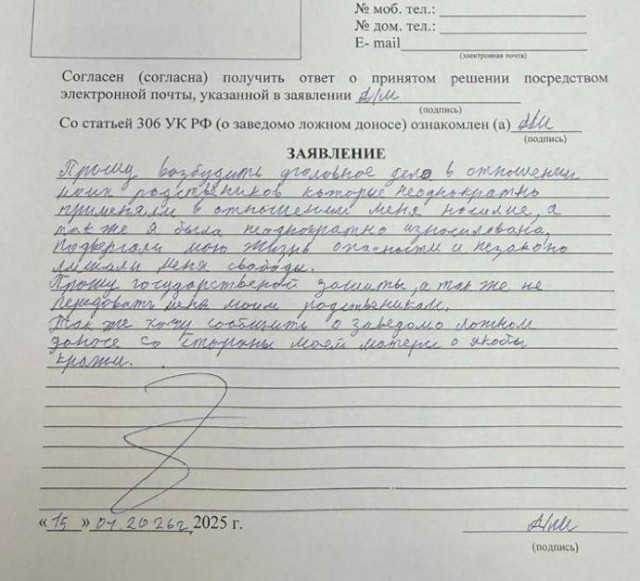 № моб. тел.:
№ дом. тел.:
E- mail
(электронная почта)
Согласен (согласна) получить ответ о принятом решении посредством
электронной почты, указанной в заявлении
(подпись)
Со статьей 306 УК РФ (о заведомо ложном доносе) ознакомлен (а)
(подпись)
ЗАЯВЛЕНИЕ
Прошу возбудить уголовное дело в отношении
моих родствеников которые неоднократно
применяли в отношении меня насилие, а
так же я была неоднократно изнасилована,
Подвергали мою жизнь опасности и незаконо
лишали меня свободы.
Прошу государственой защиты, а так же не
передовать меня моим родственикам.
Так же хочу сообщить о заведомо ложном
доносе со стороны моей матери о якобы
кражи.
«15» 01.2026г. 2025 г.
(подпись)